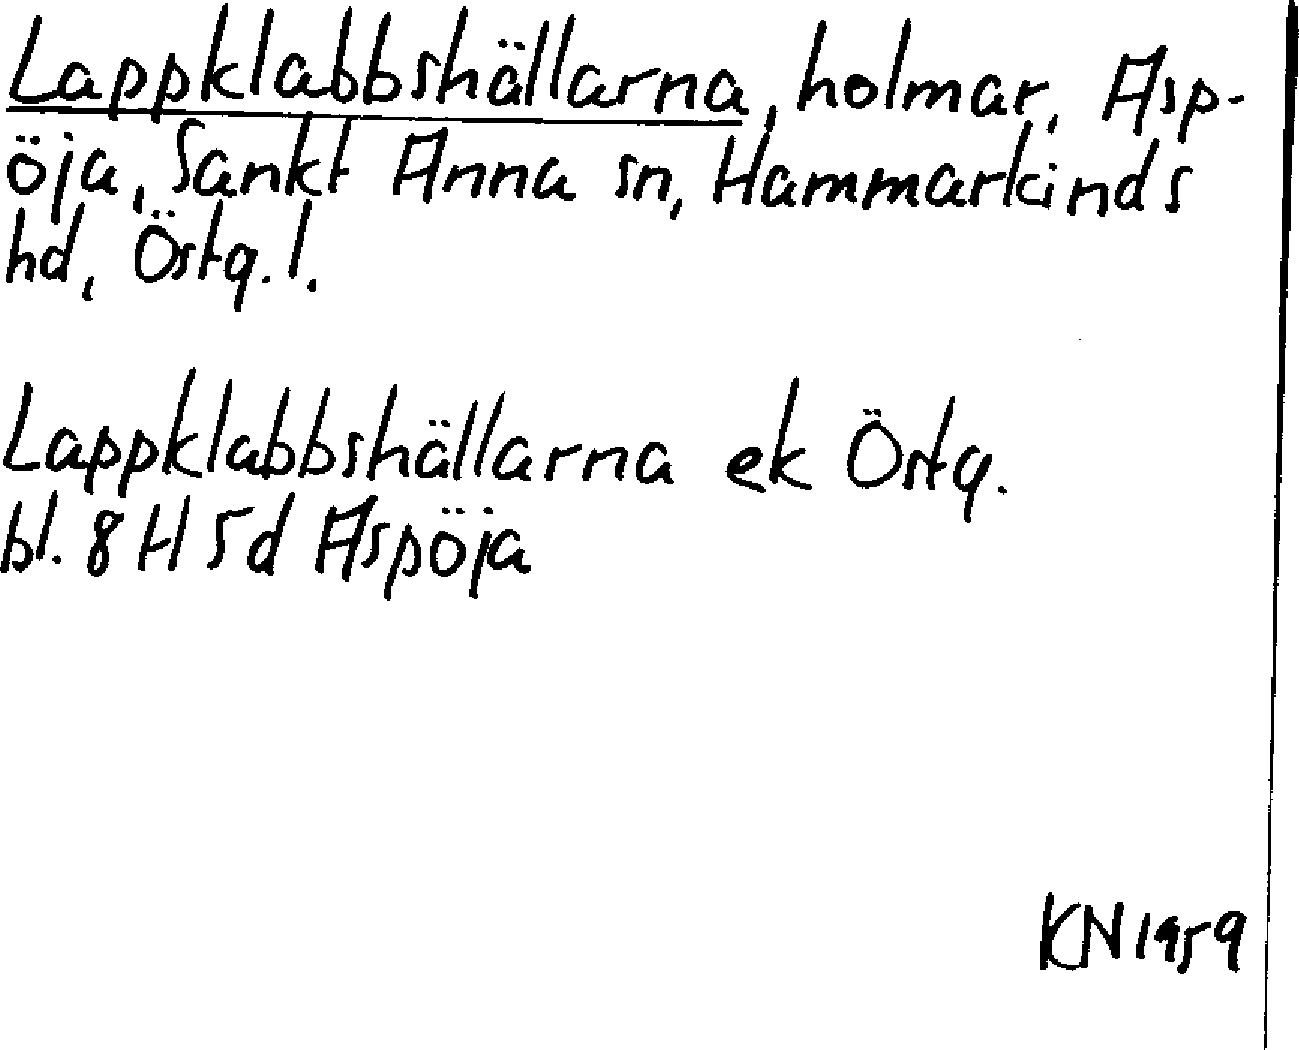 Lappklabbshällarna, holmar, Asp-
öja, Sankt Anna sn, Hammarkinds
hd, Östg. l.
Lappklabbshällarna ek Östg.
bl. 8 H 5d Aspöja
KN 1959